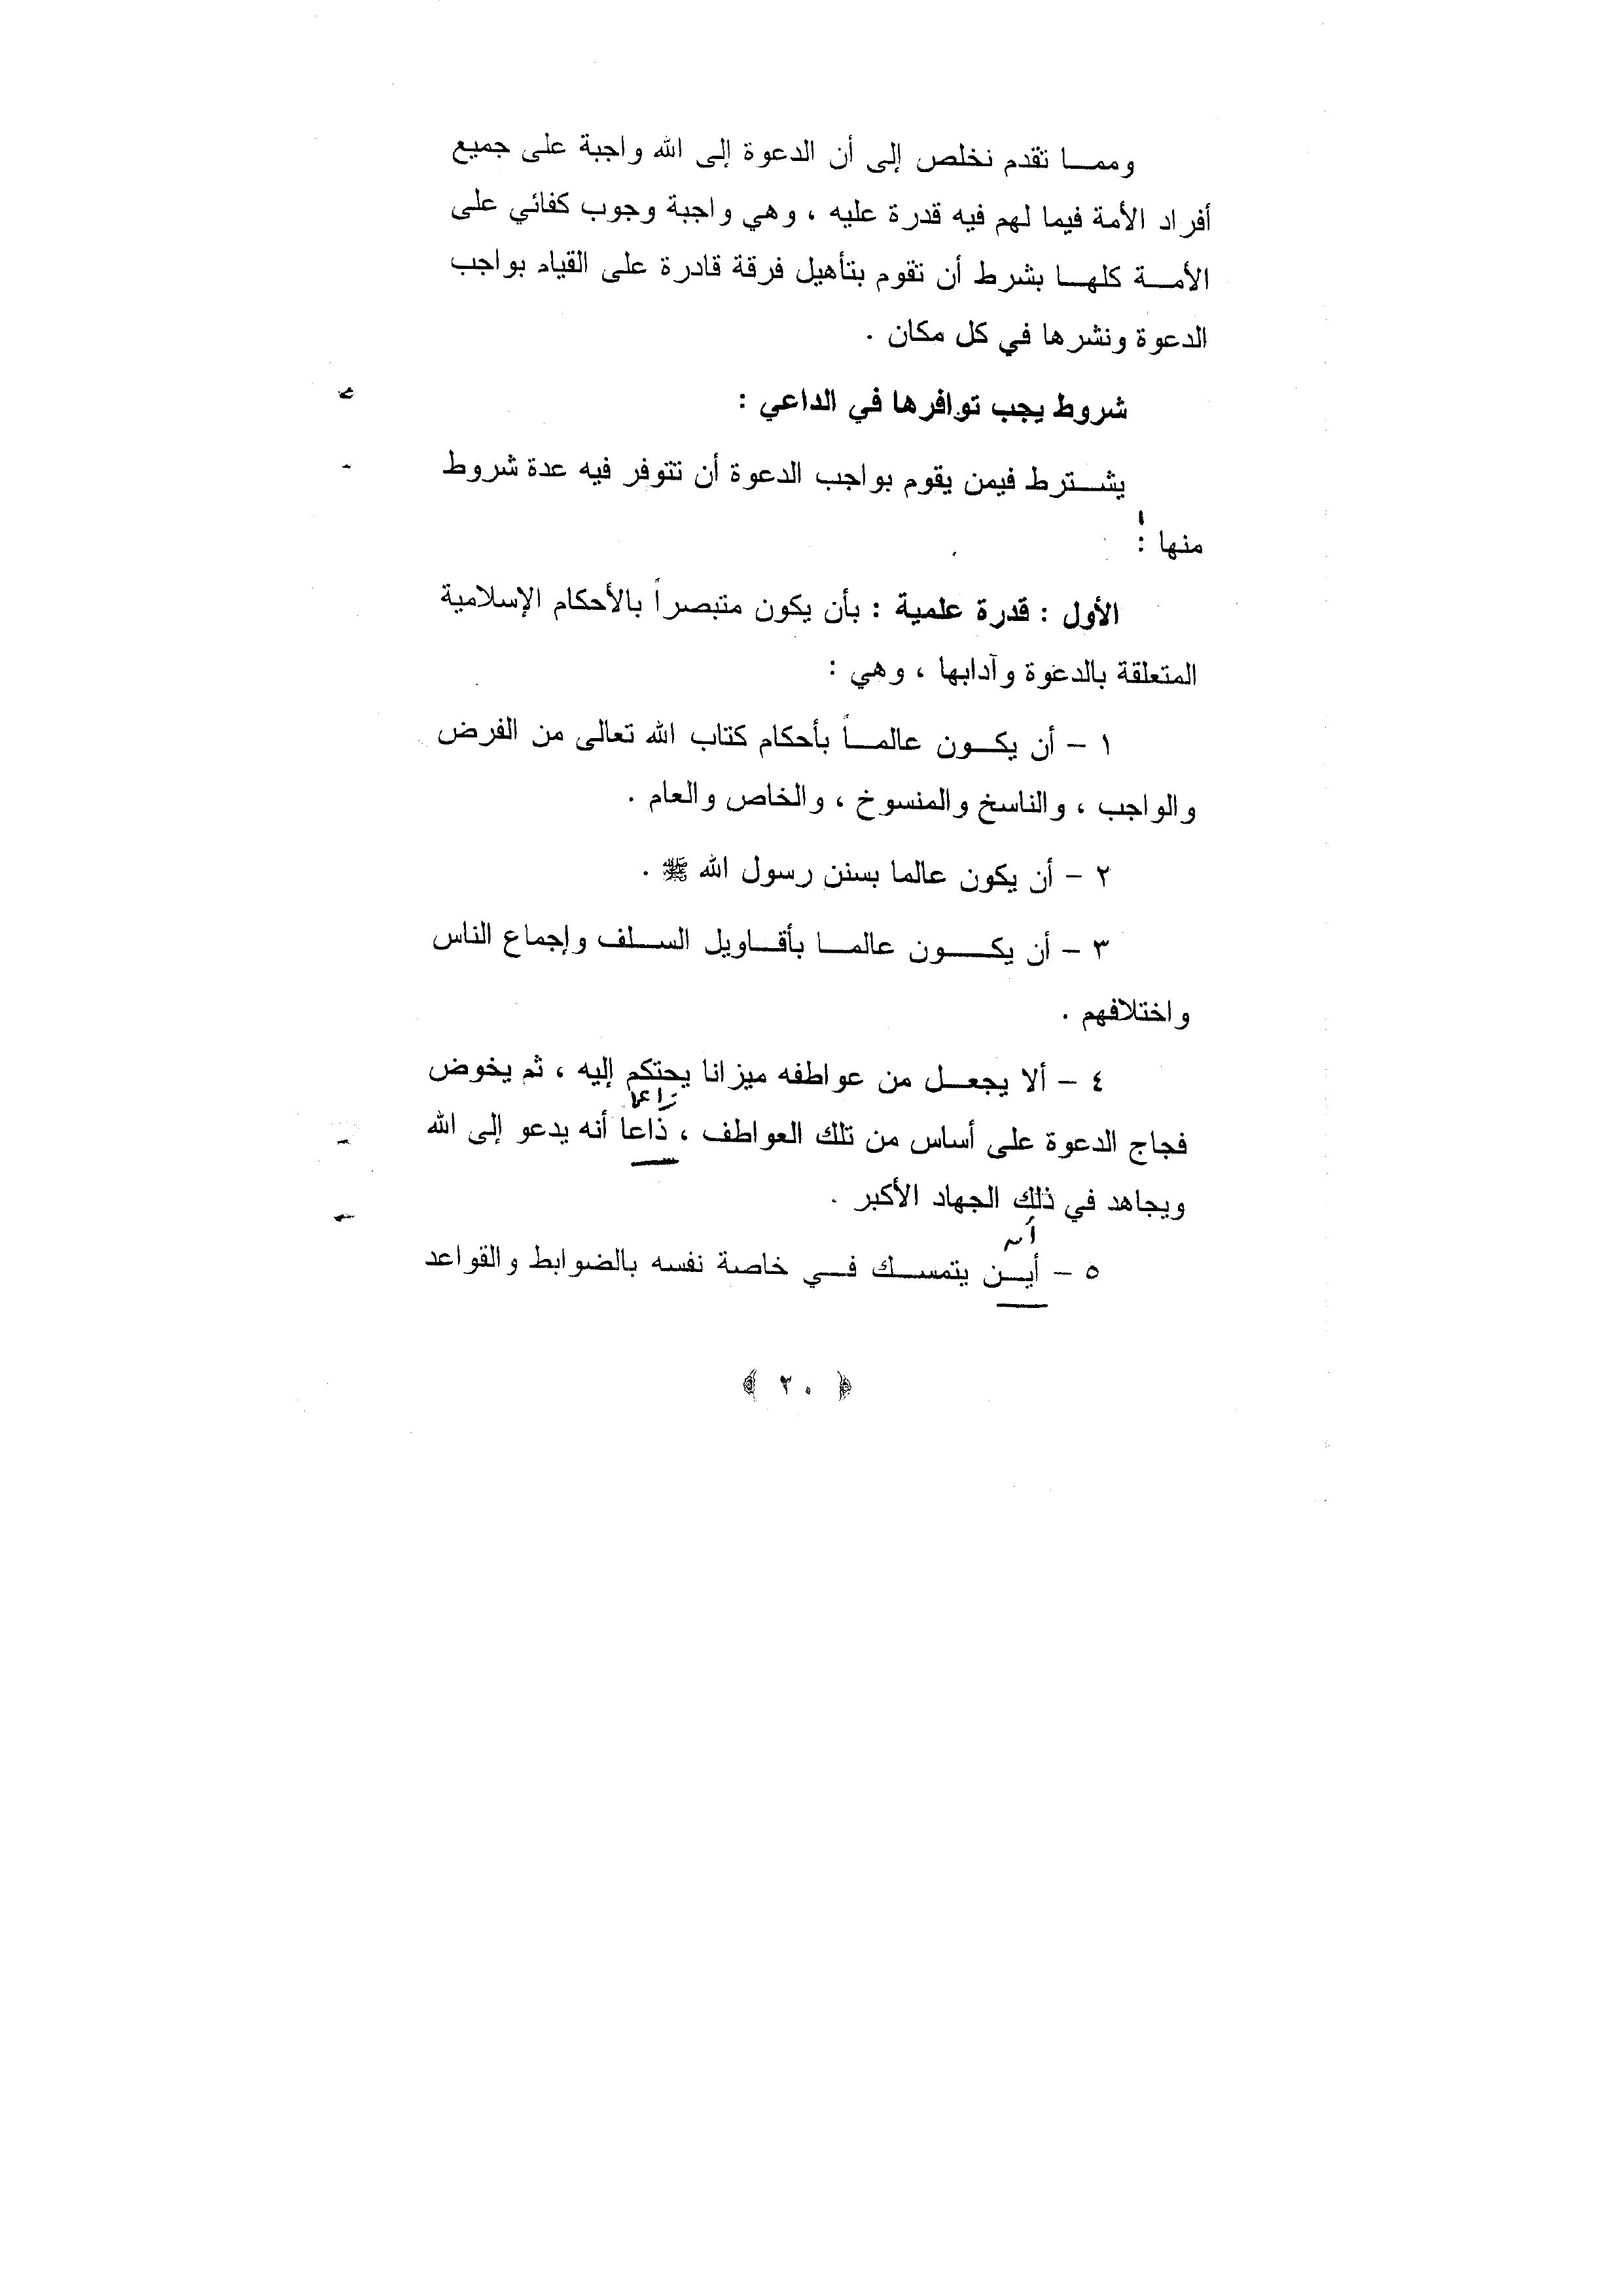 ومما تقدم نخلص إلى أن الدعوة إلى الله واجبة على جميع
أفراد الأمة فيما لهم فيه قدرة عليه ، وهي واجبة وجوب كفائي على
الأمة كلها بشرط أن تقوم بتأهيل فرقة قادرة على القيام بواجب
الدعوة ونشرها في كل مكان .
شروط يجب توافرها في الداعي :
يشترط فيمن يقوم بواجب الدعوة أن تتوفر فيه عدة شروط
منها :
الأول : قدرة علمية : بأن يكون متبصراً بالأحكام الإسلامية
المتعلقة بالدعوة وآدابها ، وهي :
١ – أن يكون عالماً بأحكام كتاب الله تعالى من الفرض
والواجب ، والناسخ والمنسوخ ، والخاص والعام .
٢ – أن يكون عالما بسنن رسول الله ﷺ .
٣ – أن يكون عالما بأقاويل السلف وإجماع الناس
واختلافهم .
٤ – ألا يجعل من عواطفه ميزانا يحتكم إليه ، ثم يخوض
فجاج الدعوة على أساس من تلك العواطف ، ذاعا أنه يدعو إلى الله
ويجاهد في ذلك الجهاد الأكبر .
أن
٥ – أين يتمسك في خاصة نفسه بالضوابط والقواعد
﴿ ٢٠ ﴾